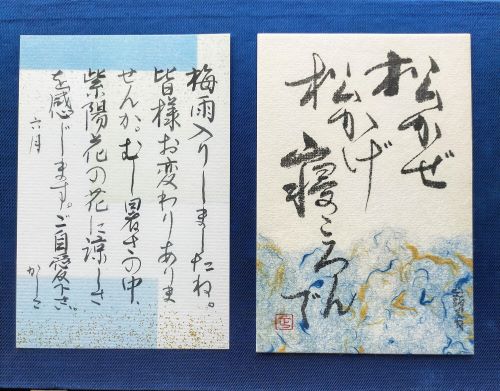 松かぜ
松かげ
寝ころんで
梅雨入りしましたね。
皆様お変わりありま
せんか。むし暑さの中
紫陽花の花に涼しさ
を感じます。ご自愛
六月 かしこ